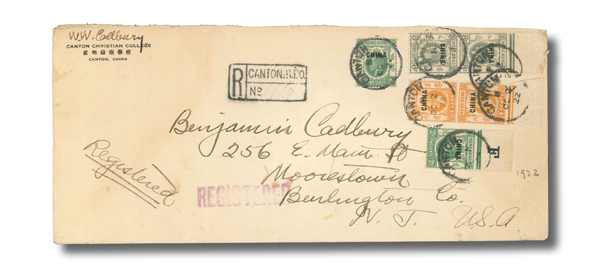 W.W. Cadbury
CANTON CHRISTIAN COLLEGE
CANTON, CHINA
R
CANTON.B.P.O.
No
CHINA
CHINA
CHINA
CHINA
CHINA
CHINA
CANTON
Benjamin Cadbury
256 E. Main St
Moorestown
Burlington Co.
N. J. U.S.A
Registered
REGISTERED
1922